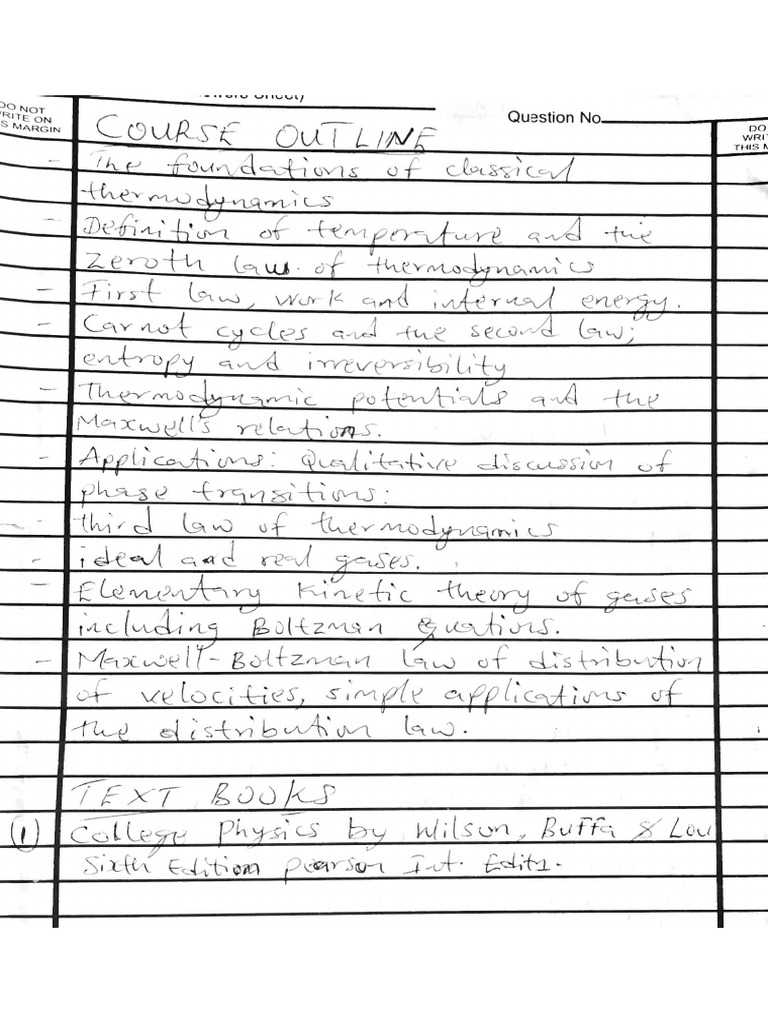 DO NOT
WRITE ON
S MARGIN
Question No.
DO
WRIT
THIS M
COURSE OUTLINE
- The foundations of classical
thermodynamics
- Definition of temperature and the
Zeroth law of thermodynamics
- First law, work and internal energy.
- Carnot cycles and the second law;
entropy and irreversibility
- Thermodynamic potentials and the
Maxwell's relations.
- Applications: Qualitative discussion of
phase transitions:
- third law of thermodynamics
- ideal and real gases.
- Elementary Kinetic theory of gases
including Boltzman Equations.
- Maxwell-Boltzman law of distribution
of velocities, simple applications of
the distribution law.
TEXT BOOKS
(1) College Physics by Wilson, Buffa & Lou
Sixth Edition pearson Int. Edit